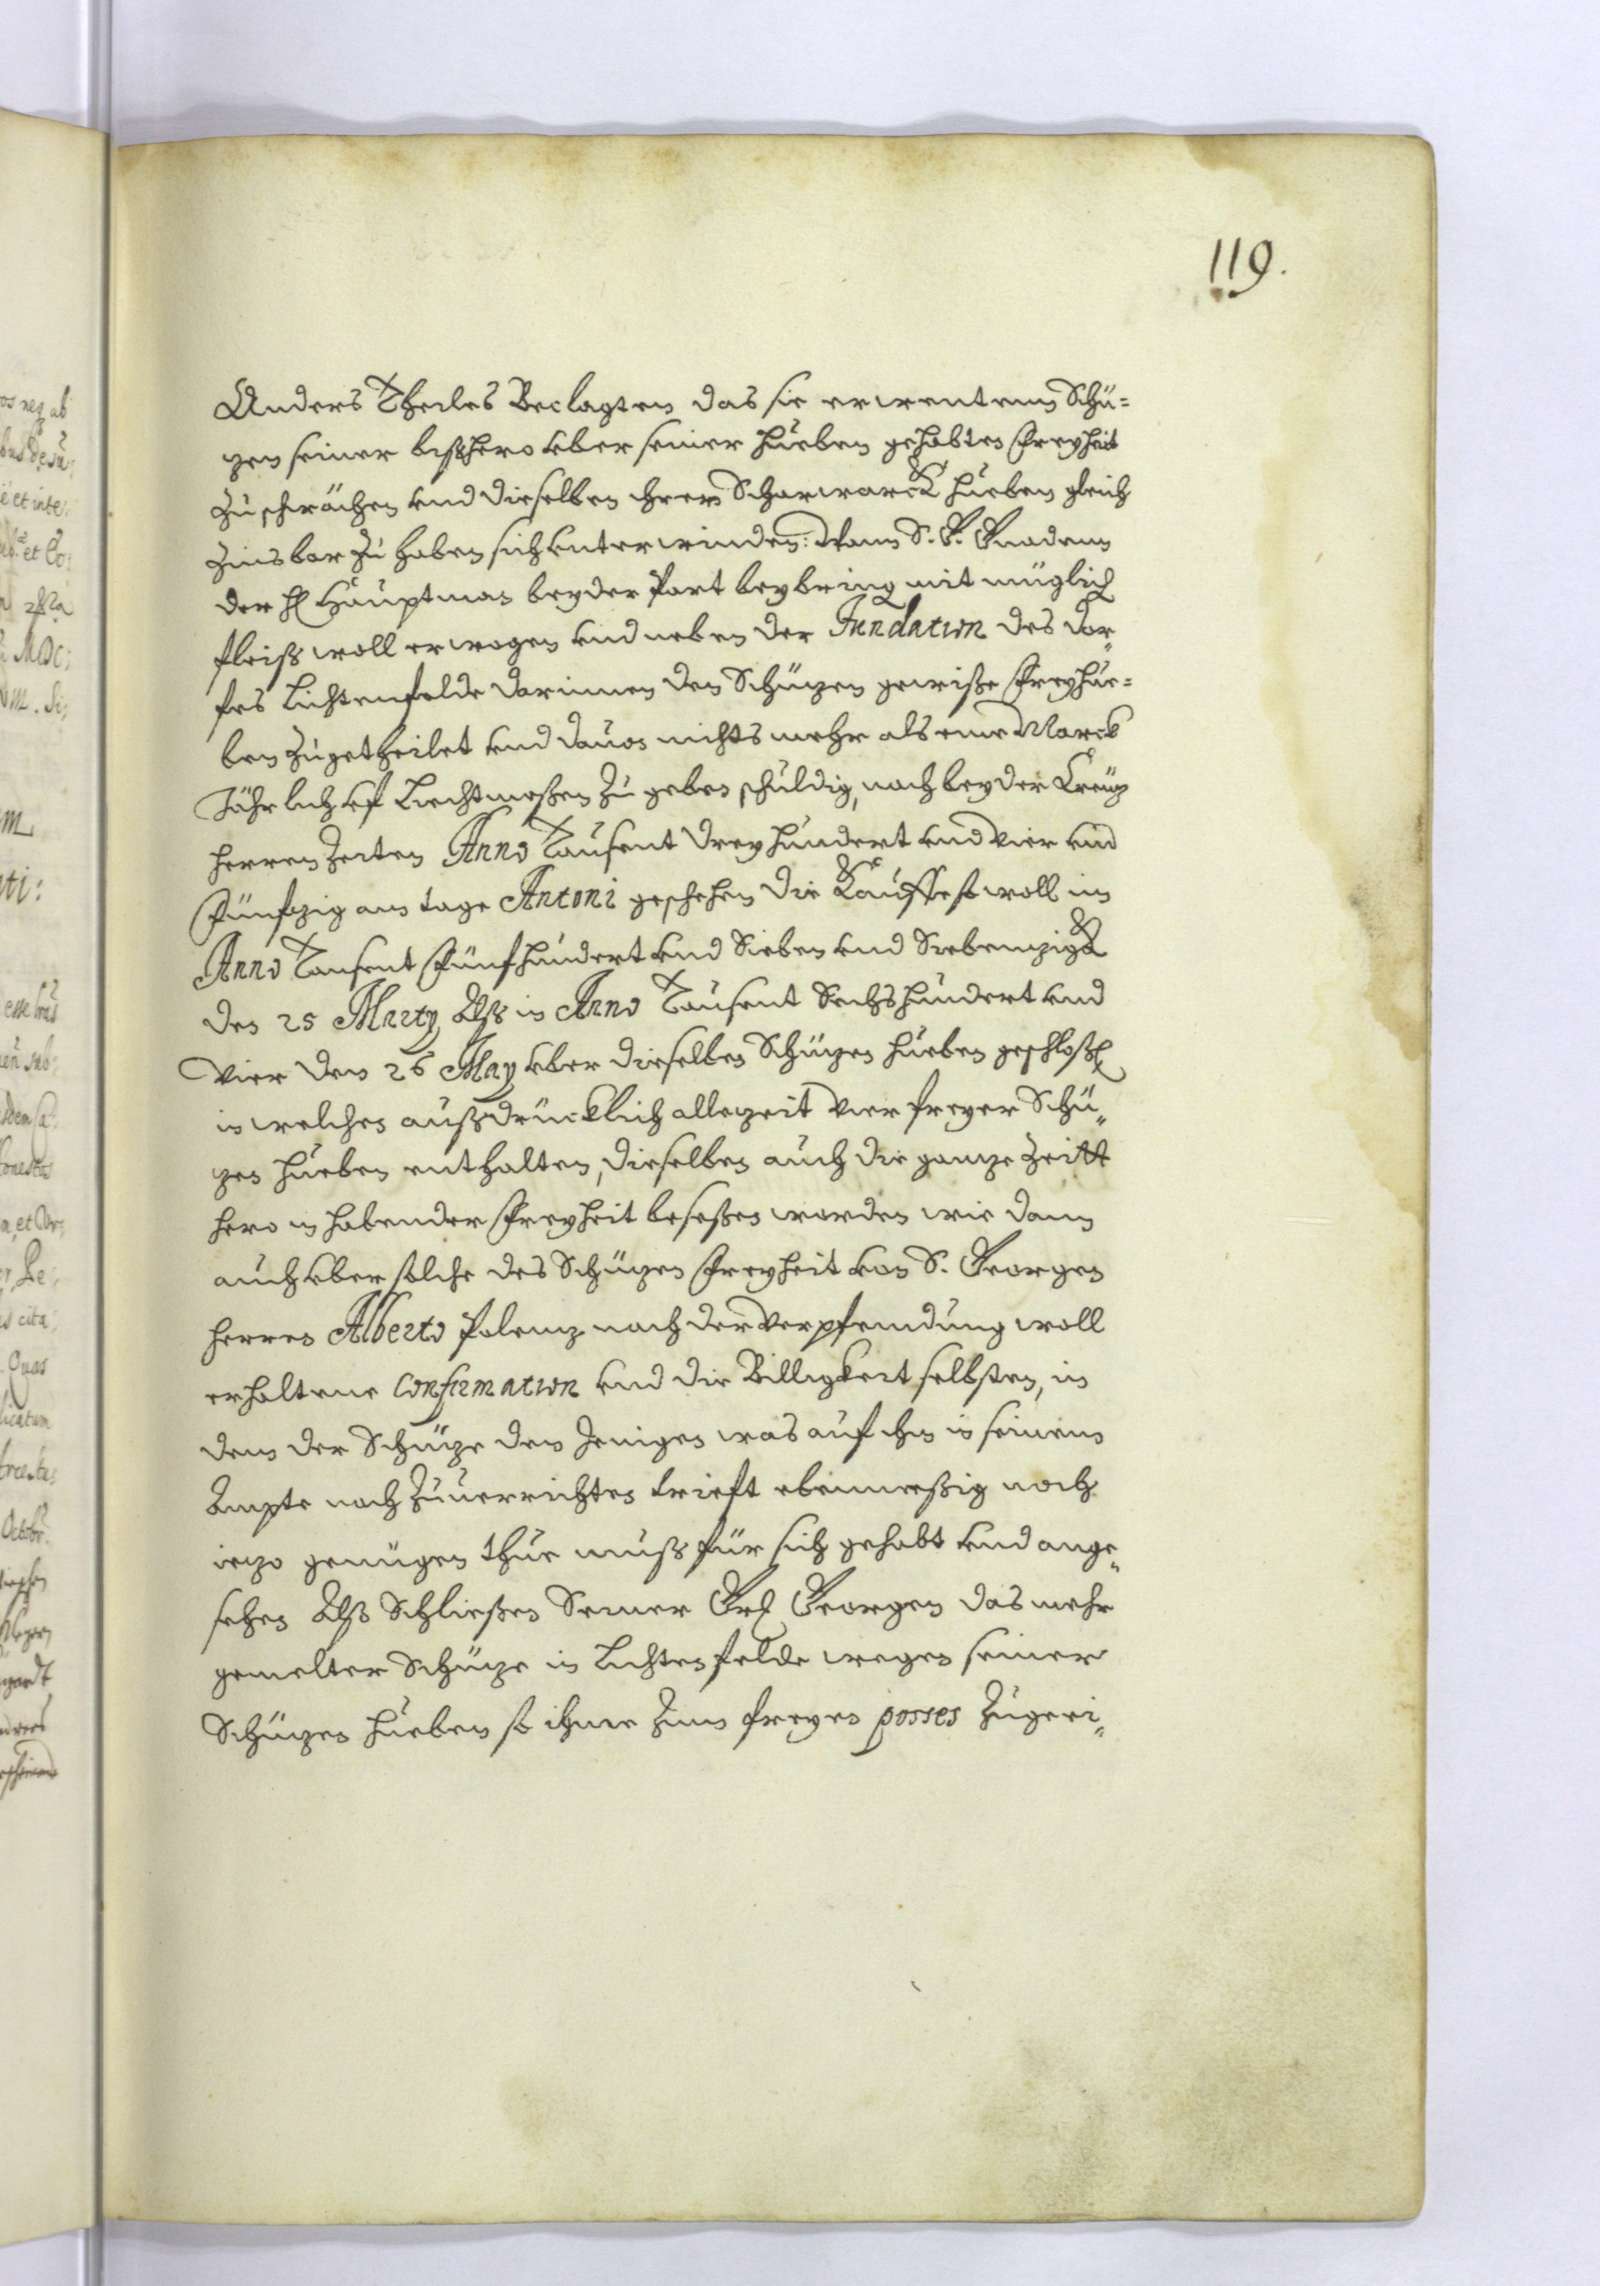 119.
Anders Theiles Beclagten das sie erwentenn Schü=
tzen seiner bißhero vber seiner Hueben gehabten Freyheit
zu schwächen vnd dieselben ihren Scharwarck Hueben gleich
Zinsbar zu haben sich vnterwinden: Wann S. G. Gnadenn
der H Hauptman beyder Part beybring mit müglich
fleiß woll erwogen vnd neben der Fundation des Dor„
fes Lichtenfelde darinnen den Schützen gewiße Freyhue=
ben zugetheilet vnd dauon nichts mehr als eine Marck
Jährlich vf Liechtmeßen zu geben schuldig, noch bey der Creutz
herren Zeiten Anno Tausent Dreyhundert vnd vier vnd
Fünfzig am tage Antoni geschehen die Kauffe so woll im
Anno Tausent Fünfhundert vnd Sieben vnd Siebenzigk
den 25 Marty Alß in Anno Tausent Sechshundert vnd
Vier den 26 May vber dieselben Schützen Hueben geschloßen
in welchen außdrücklich allezeit Vier freyer Schü„
tzen Hueben enthalten, dieselben auch die gantze Zeitt
hero in habender Freyheit beseßen worden wie dann
auch vber solche des Schützen Freyheit von S. Georgen
Herren Alberto Polentz nach der Verpfendung woll
erhaltene Confirmation vnd die Billigkeit selbsten, in
dem der Schütze den Jenigen was auf ihn in seinem
Ampte nach zuuerrichten trieft ebenmeßig noch
ietzo genügen thue muß für sich gehabt vnd ange„
sehen Alß Schließen Seiner Georgen das mehr
gemelter Schütze in Lichtenfelde wegen seiner
Schützen Hueben so ihme zum freyen posses zugeei„